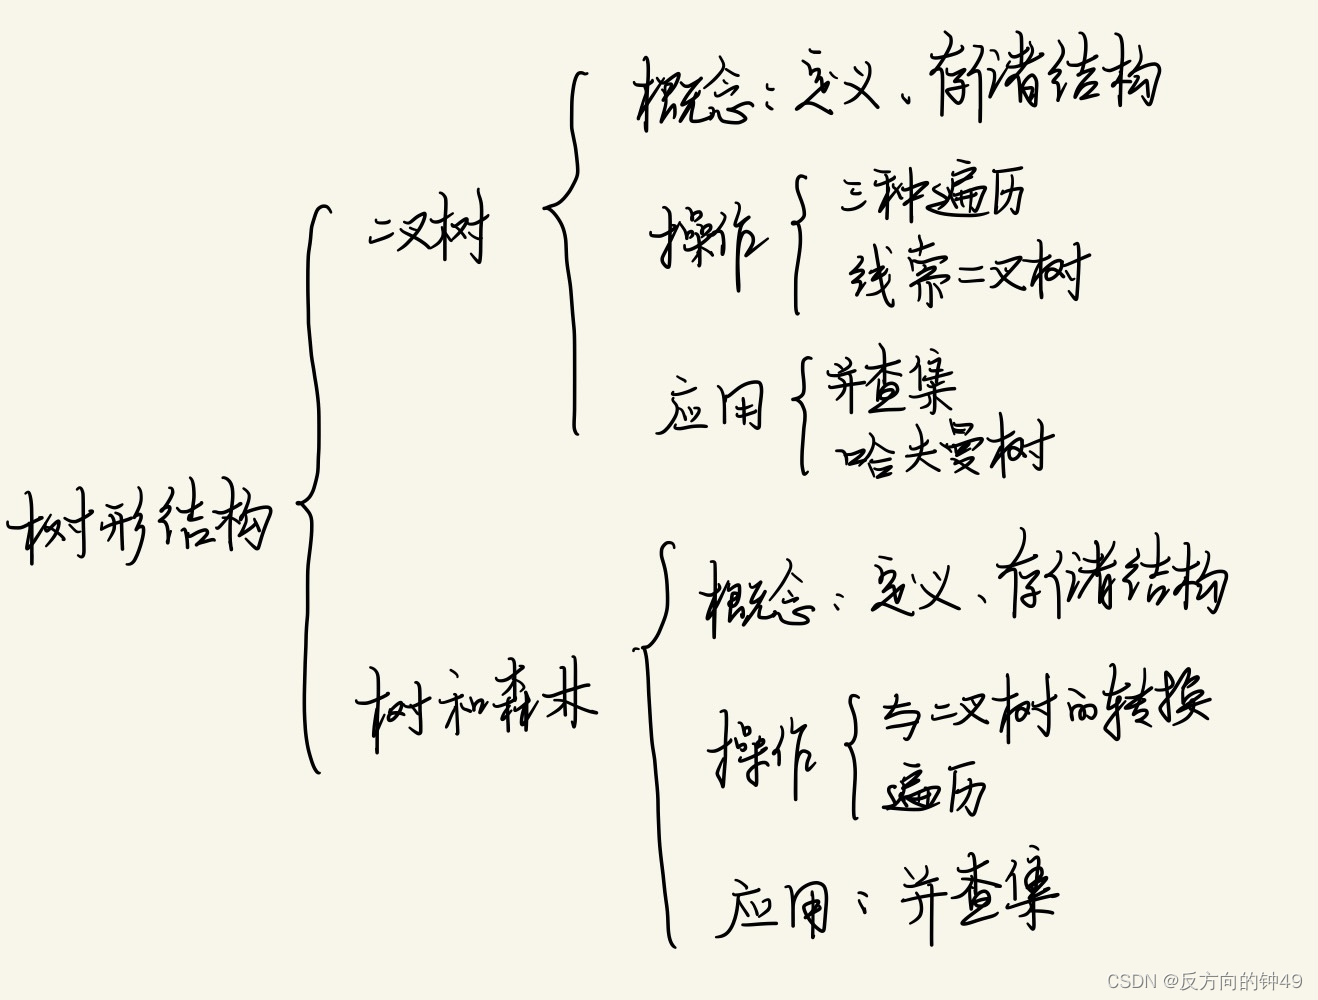 概念：定义、存储结构
三种遍历
二叉树
操作
线索二叉树
并查集
应用
哈夫曼树
树形结构
概念：定义、存储结构
树和森林
与二叉树的转换
操作
遍历
应用：并查集
CSDN @反方向的钟49